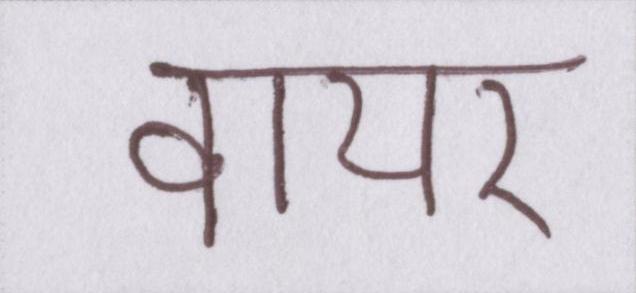 वायर